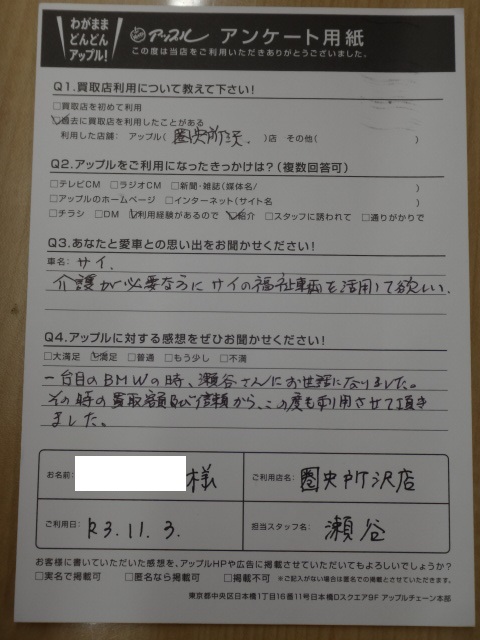 わがまま
どんどん
アップル!
アップル アンケート用紙
この度は当店をご利用いただきありがとうございました。
Q1.買取店利用について教えて下さい!
□買取店を初めて利用
☑過去に買取店を利用したことがある
利用した店舗: アップル( 圏央所沢 )店 その他( )
Q2.アップルをご利用になったきっかけは?(複数回答可)
□テレビCM □ラジオCM □新聞・雑誌(媒体名/ )
□アップルのホームページ □インターネット(サイト名 )
□チラシ □DM ☑利用経験があるので ☑紹介 □スタッフに誘われて □通りがかりで
Q3.あなたと愛車との思い出をお聞かせください!
車名: サイ.
介護が必要な方に サイの福祉車両を活用して欲しい.
Q4.アップルに対する感想をぜひお聞かせください!
□大満足 ☑満足 □普通 □もう少し □不満
一台目のBMWの時、瀬谷さんにお世話になりました。
その時の買取額及び信頼から、この度も利用させて頂き
ました。
お名前: 様
ご利用店名: 圏央所沢店
ご利用日: R3.11.3.
担当スタッフ名: 瀬谷
お客様に書いていただいた感想を、アップルHPや広告に掲載させていただいてもよろしいでしょうか?
□実名で掲載可 □匿名なら掲載可 □掲載不可 ※ご記入がない場合は匿名での掲載とさせていただきます。
東京都中央区日本橋1丁目16番11号日本橋Dスクエア9F アップルチェーン本部